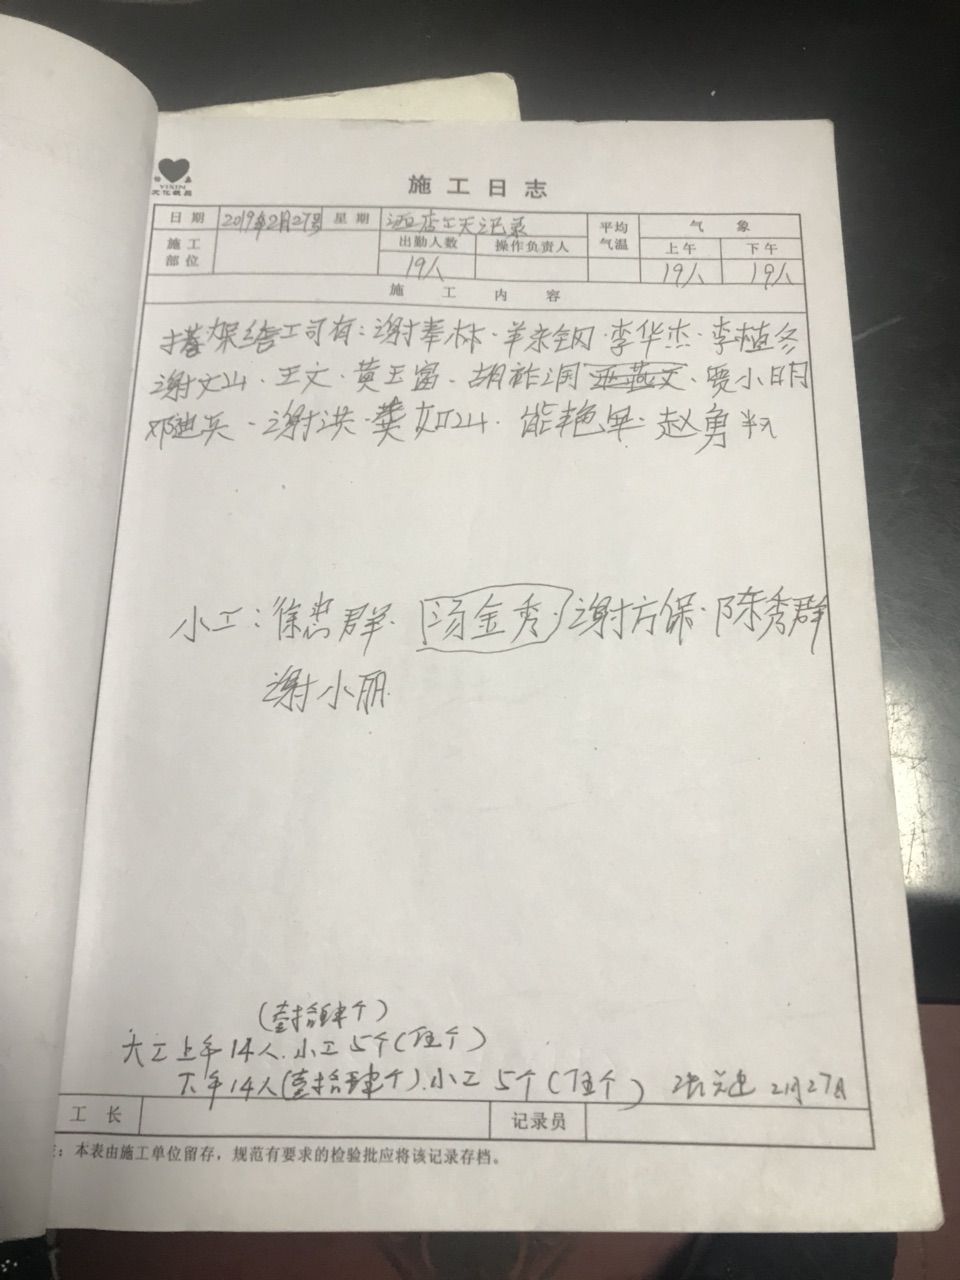 YIXIN
施工日志
日期 2019年2月27号 星期 酒店工天记录 平均气温 气象
施工部位 出勤人数 操作负责人 上午 下午
19人 19人 19人
施工内容
搭架 工司有：谢奉林·羊亲钢·李华杰·李植冬
谢文山·王文·黄玉富·胡祚国 贾小明
邓迪兵·谢洪·龚如山·能艳军·赵勇半天
小工：徐忠群·汤金秀·谢方保·陈秀群
谢小丽
(壹拾肆个)
大工上午14人.小工5个(伍个)
下午14人(壹拾肆个).小工5个(伍个) 2月27日
工长 记录员
注：本表由施工单位留存，规范有要求的检验批应将该记录存档。